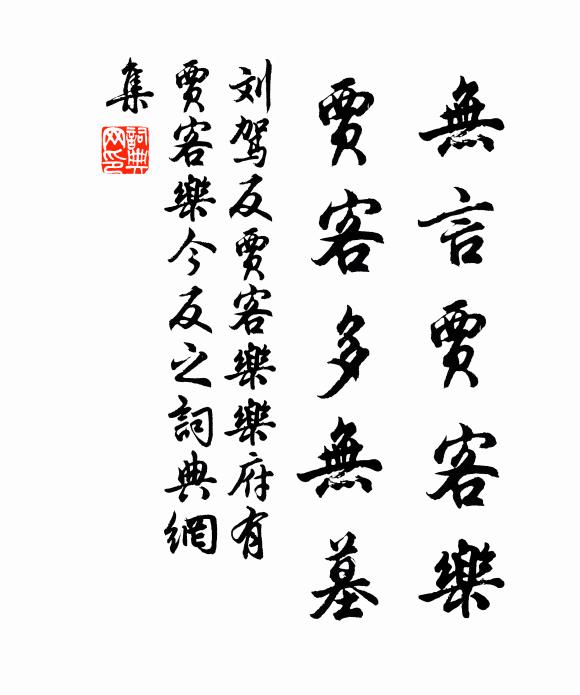 無言賈客樂
賈客多無墓
刘駕反賈客樂樂府有
賈客樂今反之詞典網
集
詞典
网印